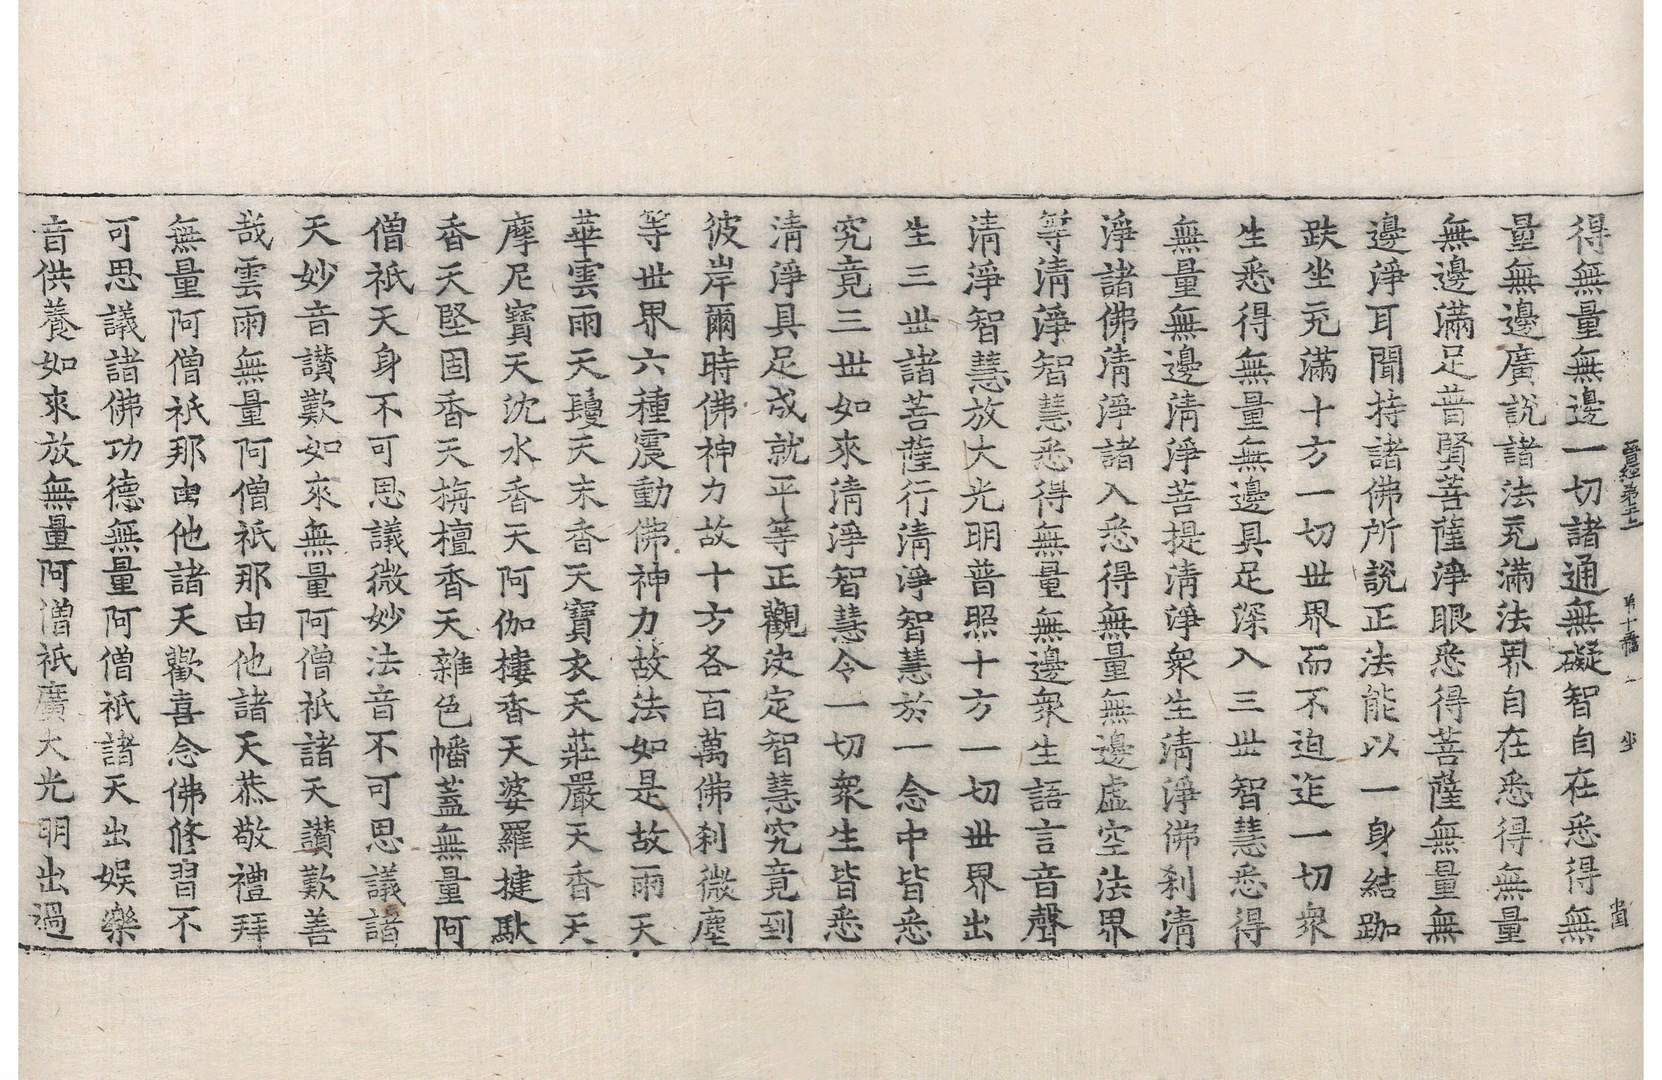 得無量無邊一切諸通無礙智自在悉得無
量無邊廣說諸法充滿法界自在悉得無量
無邊滿足普賢菩薩淨眼悉得菩薩無量無
邊淨耳聞持諸佛所說正法能以一身結跏
趺坐充滿十方一切世界而不迫迮一切衆
生悉得無量無邊具足深入三世智慧悉得
無量無邊清淨菩提清淨衆生清淨佛刹清
淨諸佛清淨諸入悉得無量無邊虛空法界
等清淨智慧悉得無量無邊衆生語言音聲
清淨智慧放大光明普照十方一切世界出
生三世諸菩薩行清淨智慧於一念中皆悉
究竟三世如來清淨智慧令一切衆生皆悉
清淨具足成就平等正觀決定智慧究竟到
彼岸爾時佛神力故十方各百萬佛刹微塵
等世界六種震動佛神力故法如是故雨天
華雲雨天鬘天末香天寶衣天莊嚴天香天
摩尼寶天沈水香天阿伽樓香天婆羅揵馱
香天堅固香天栴檀香天雜色幡蓋無量阿
僧祇天身不可思議微妙法音不可思議諸
天妙音讃歎如來無量阿僧祇諸天讃歎善
哉雲雨無量阿僧祇那由他諸天恭敬禮拜
無量阿僧祇那由他諸天歡喜念佛修習不
可思議諸佛功德無量阿僧祇諸天出娯樂
音供養如來放無量阿僧祇廣大光明出過